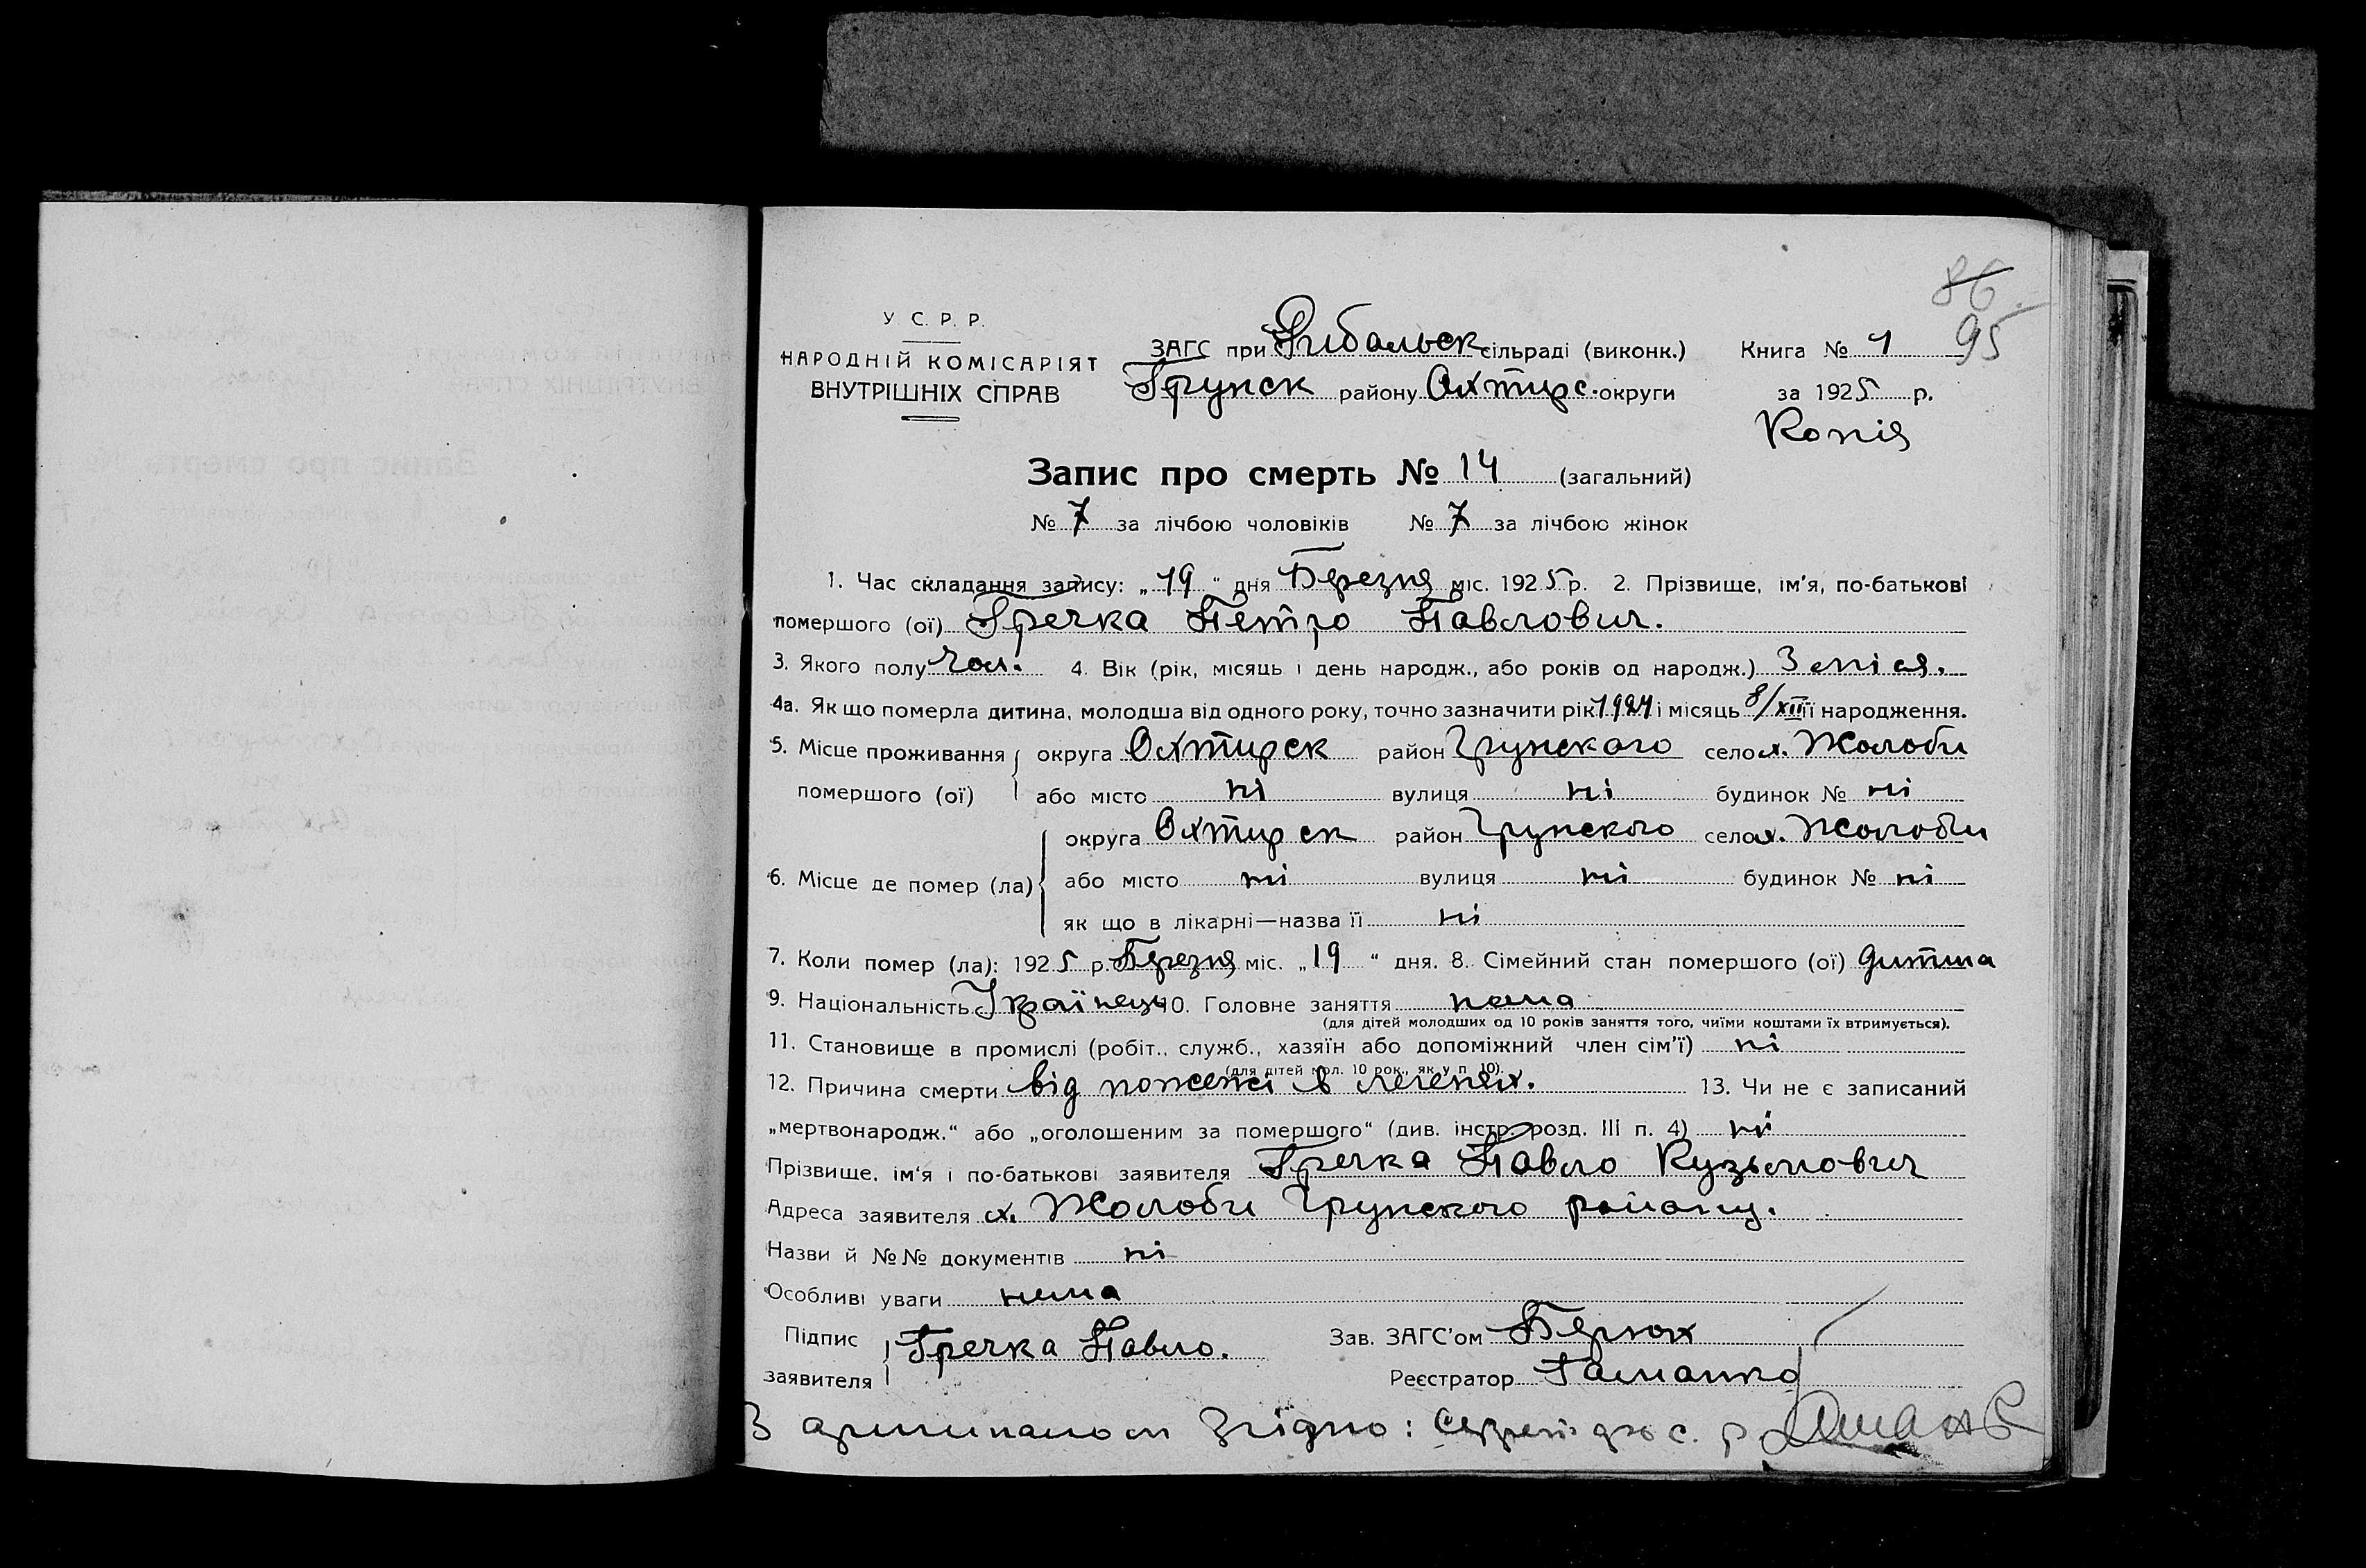 86
95
У С. Р. Р.
НАРОДНІЙ КОМІСАРІЯТ
ВНУТРІШНІХ СПРАВ
ЗАГС при Рибальск сільраді (виконк.) Книга № 1
Грунск району Охтирс. округи за 1925 р.
Копія
Запис про смерть № 14 (загальний)
№ 7 за лічбою чоловіків № 7 за лічбою жінок
1. Час складання запису: „19“ дня Березня міс. 1925 р. 2. Прізвище, ім’я, по-батькові
помершого (ої) Гречка Петро Павлович.
3. Якого полу Чол. 4. Вік (рік, місяць і день народж., або років од народж.) 3 міся.
4а. Як що померла дитина, молодша від одного року, точно зазначити рік 1924 і місяць 8/XII її народження.
5. Місце проживання округа Охтирск район Грунского село х. Жолоби
помершого (ої) або місто ні вулиця ні будинок № ні
округа Охтирск район Грунского село х. Жолоби
6. Місце де помер (ла) або місто ні вулиця ні будинок № ні
як що в лікарні—назва її ні
7. Коли помер (ла): 1925 р. Березня міс. „19“ дня. 8. Сімейний стан помершого (ої) дитина
9. Національність Українець 10. Головне заняття нема
(для дітей молодших од 10 років заняття того, чиїми коштами їх втримується).
11. Становище в промислі (робіт., служб., хазяїн або допоміжний член сім’ї) ні
(для дітей мол. 10 рок., як у п. 10).
12. Причина смерти від в легенях. 13. Чи не є записаний
„мертвонародж.“ або „оголошеним за помершого“ (див. інстр. розд. III п. 4) ні
Прізвище, ім’я і по-батькові заявителя Гречка Павло Кузьмович
Адреса заявителя х. Жолоби Грунского району.
Назви й №№ документів ні
Особливі уваги нема
Підпис заявителя Гречка Павло. Зав. ЗАГС’ом
Реєстратор
З згідно: